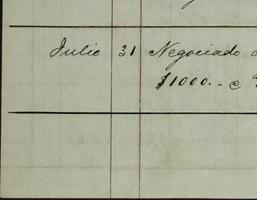 Julio 31 Negociado
$1000.- c